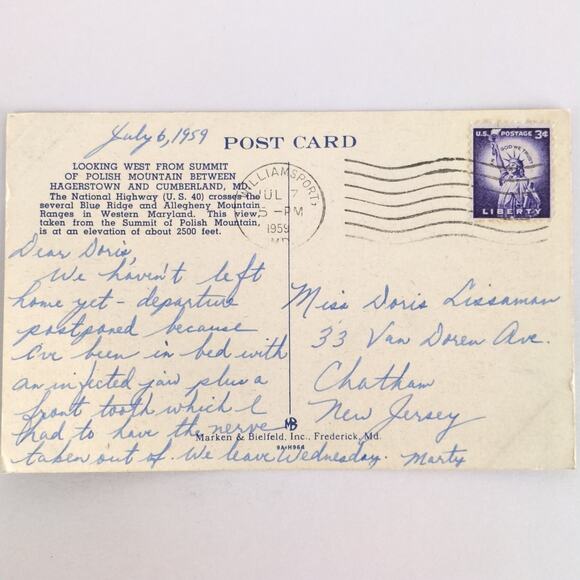 July 6, 1959
POST CARD
LOOKING WEST FROM SUMMIT
OF POLISH MOUNTAIN BETWEEN
HAGERSTOWN AND CUMBERLAND, MD.
The National Highway (U. S. 40) crosses the
several Blue Ridge and Allegheny Mountain
Ranges in Western Maryland. This view,
taken from the Summit of Polish Mountain,
is at an elevation of about 2500 feet.
WILLIAMSPORT,
JUL 7
5 - PM
1959
MD.
U.S. POSTAGE 3¢
IN GOD WE TRUST
LIBERTY
Dear Doris,
We haven't left
home yet - departure
postponed because
I've been in bed with
an infected jaw plus a
front tooth which I
had to have the nerve
taken out of. We leave Wednesday. Marty
Miss Doris Lissaman
33 Van Doren Ave.
Chatham
New Jersey
MB
Marken & Bielfeld, Inc., Frederick, Md.
9A-H964